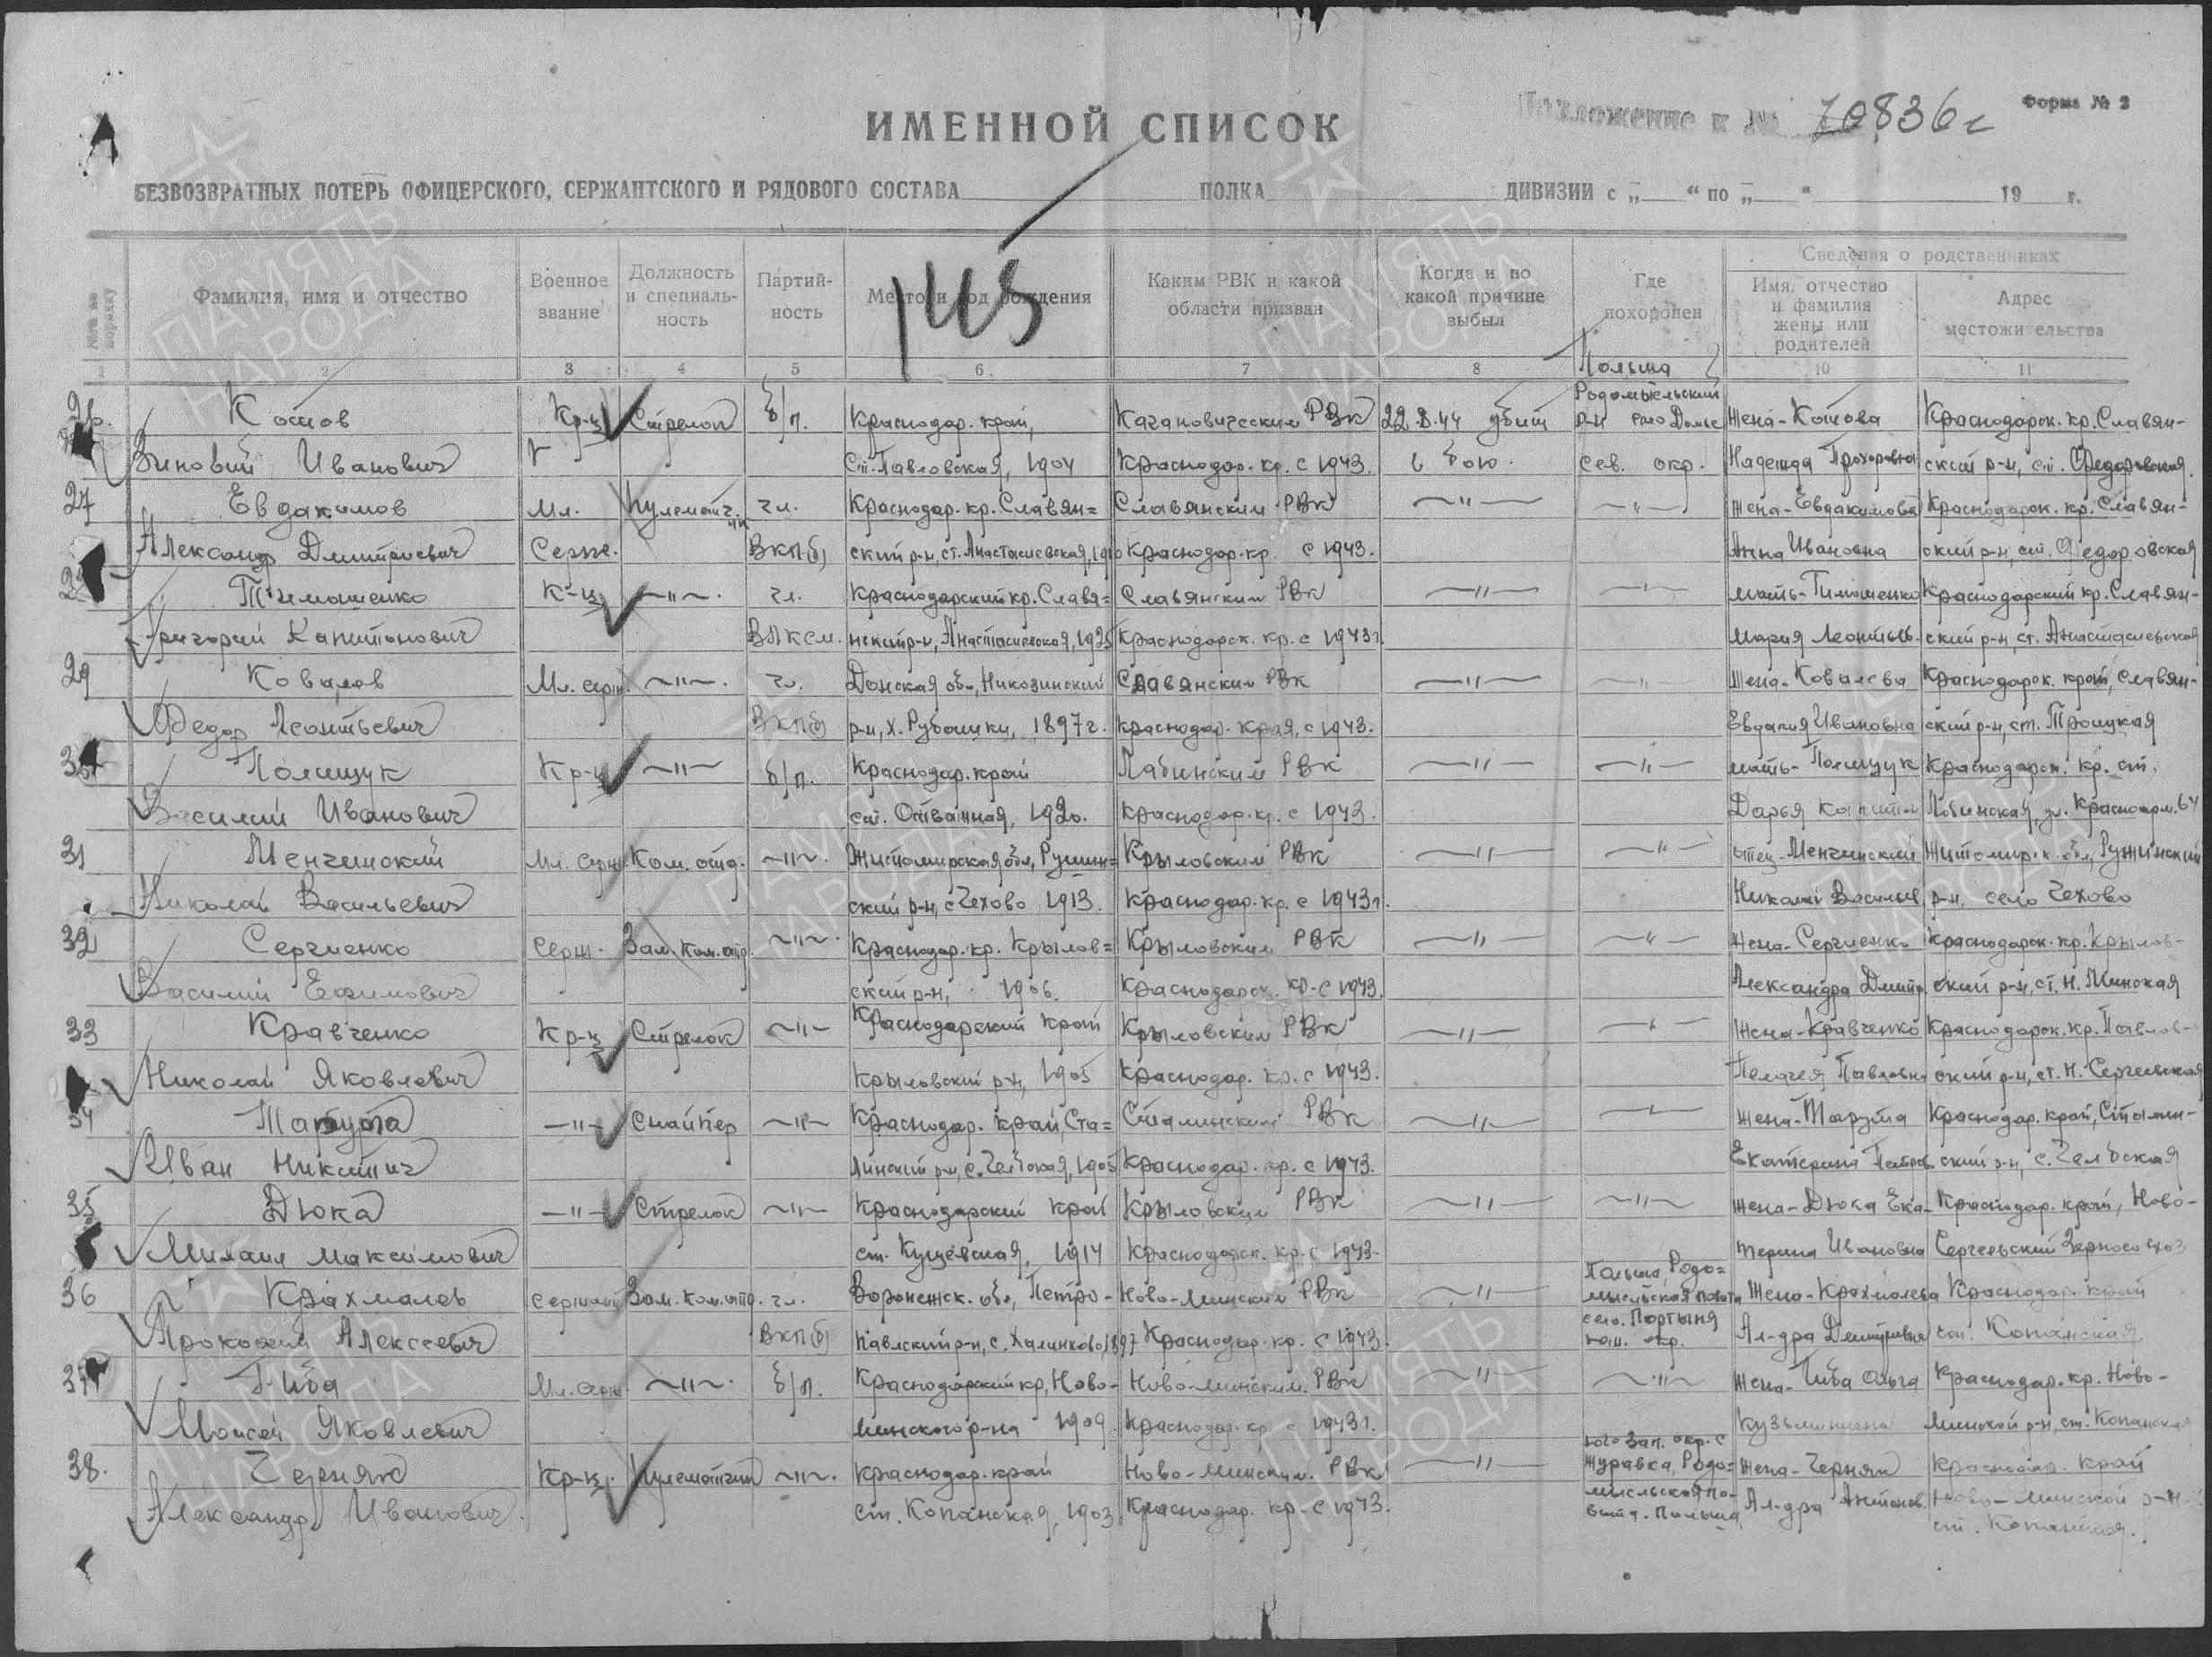 ИМЕННОЙ СПИСОК
Приложение к № 70836с
Форма № 2
БЕЗВОЗВРАТНЫХ ПОТЕРЬ ОФИЦЕРСКОГО, СЕРЖАНТСКОГО И РЯДОВОГО СОСТАВА ПОЛКА ДИВИЗИИ с „ “ по „ “ 19 г.
№№ по порядку
Фамилия, имя и отчество
Военное звание
Должность и специаль-ность
Партий-ность
Место и год рождения
Каким РВК и какой области призван
Когда и по какой причине выбыл
Где похоронен
Сведения о родственниках
Имя, отчество и фамилия жены или родителей
Адрес местожительства
1 2 3 4 5 6 7 8 10 11
Польша
Родомысльский
26. Котов Кр-ц Стрелок б/п. Краснодар. край, Кагановическим РВК 22.8.44 убит р-н село Дольс Жена-Котова Краснодарск. кр. Славян-
Зиновий Иванович ст. Павловская, 1904 Краснодар. кр. с 1943. в бою. сев. окр. Надежда Прохоровна ский р-н, ст. Федоровская.
27 Евдакимов Мл. Пулеметч. чл. Краснодар. кр. Славян= Славянским РВК —"— —"— Жена-Евдакимова Краснодарск. кр. Славян-
Александр Дмитриевич Серж. ВКП(б) ский р-н, ст. Анастасиевская, 1910 Краснодар. кр. с 1943. Анна Ивановна ский р-н, ст. Федоровская
28 Тимошенко К-ц —"— чл. Краснодарский кр. Славя= Славянским РВК —"— —"— мать-Тимошенко Краснодарский кр. Славян-
Григорий Капитонович ВЛКСМ. нский р-н, Анастасиевская, 1925 Краснодарск. кр. с 1943г. Мария Леонтьев. ский р-н, ст. Анастасиевская
29 Ковалев Мл. серж. —"— чл. Донская обл, Никозинский Славянским РВК —"— —"— Жена-Ковалева Краснодарск. край, Славян-
Федор Леонтьевич ВКП(б) р-н, х. Рубашки, 1897г. Краснодар. края, с 1943. Евдакия Ивановна ский р-н, ст. Троицкая
30 Полищук Кр-ц —"— б/п. Краснодар. край Лабинским РВК —"— —"— мать-Полищук Краснодарск. кр. ст.
Василий Иванович ст. Отважная, 1920. Краснодар. кр. с 1943. Дарья Капитон Лабинская, ул. Красноарм. 64
31 Менчинский Мл. серж. Ком. отд. —"— Житомирская обл, Ружин= Крыловским РВК —"— —"— отец-Менчинский Житомирск. обл, Ружинский
Николай Васильевич ский р-н, с Чехово 1913. Краснодар. кр. с 1943г. Николай Васильев. р-н, село Чехово
32 Сергиенко Серж. Зам. Ком. отд. —"— Краснодар. кр. Крылов= Крыловским РВК —"— —"— Жена-Сергиенко Краснодарск. кр. Крылов-
Василий Ефимович ский р-н, 1906. Краснодарск. кр. с 1943. Александра Дмитр. ский р-н, ст. Н. Минская
33 Кравченко Кр-ц Стрелок —"— Краснодарский край Крыловским РВК —"— —"— Жена-Кравченко Краснодарск. кр. Павлов-
Николай Яковлевич Крыловский р-н, 1905 Краснодар. кр. с 1943. Пелагея Павловна ский р-н, ст. Н. Сергеевская
34 Тарута —"— Снайпер —"— Краснодар. край, Ста= Сталинским РВК —"— —"— Жена-Тарута Краснодар. край, Сталин-
Иван Никитич линский р-н, с. Челбская, 1905 Краснодар. кр. с 1943. Екатерина Петров. ский р-н, с. Челбская
35 Дюка —"— Стрелок —"— Краснодарский край Крыловским РВК —"— —"— Жена-Дюка Ека- Краснодар. край, Ново-
Михаил Максимович ст. Кущевская, 1914 Краснодарск. кр. с 1943. терина Ивановна Сергеевский Зерносовхоз
Польша, Родо=
36 Крахмалев сержант Зам. ком. отд. чл. Воронежск. обл, Петро- Ново-Минским РВК —"— мысльская повята Жена-Крахмалева Краснодар. край
Прокофий Алексеевич ВКП(б) павлский р-н, с. Халинково, 1897 Краснодар. кр. с 1943. село. Партыня окр. Ал-дра Дмитриевна ст. Копанская
37 Гиба Мл. серж. —"— б/п. Краснодарский кр, Ново- Ново-Минским. РВК —"— —"— Жена-Гиба Ольга Краснодар. кр. Ново-
Моисей Яковлевич минского р-на 1909. Краснодар. кр. с 1943г. Кузьминична Минской р-н, ст. Копанская
юго зап. окр. с
38. Черняк Кр-ц. Пулеметчик —"— Краснодар. край Ново-Минским. РВК —"— Журавка, Родо= Жена-Черняк Краснодар. край
Александр Иванович. ст. Копанская, 1903 Краснодар. кр. с 1943. мысльская по-вята. Польша Ал-дра Антонов. Ново-Минской р-н
ст. Копанская.
ПАМЯТЬ НАРОДА